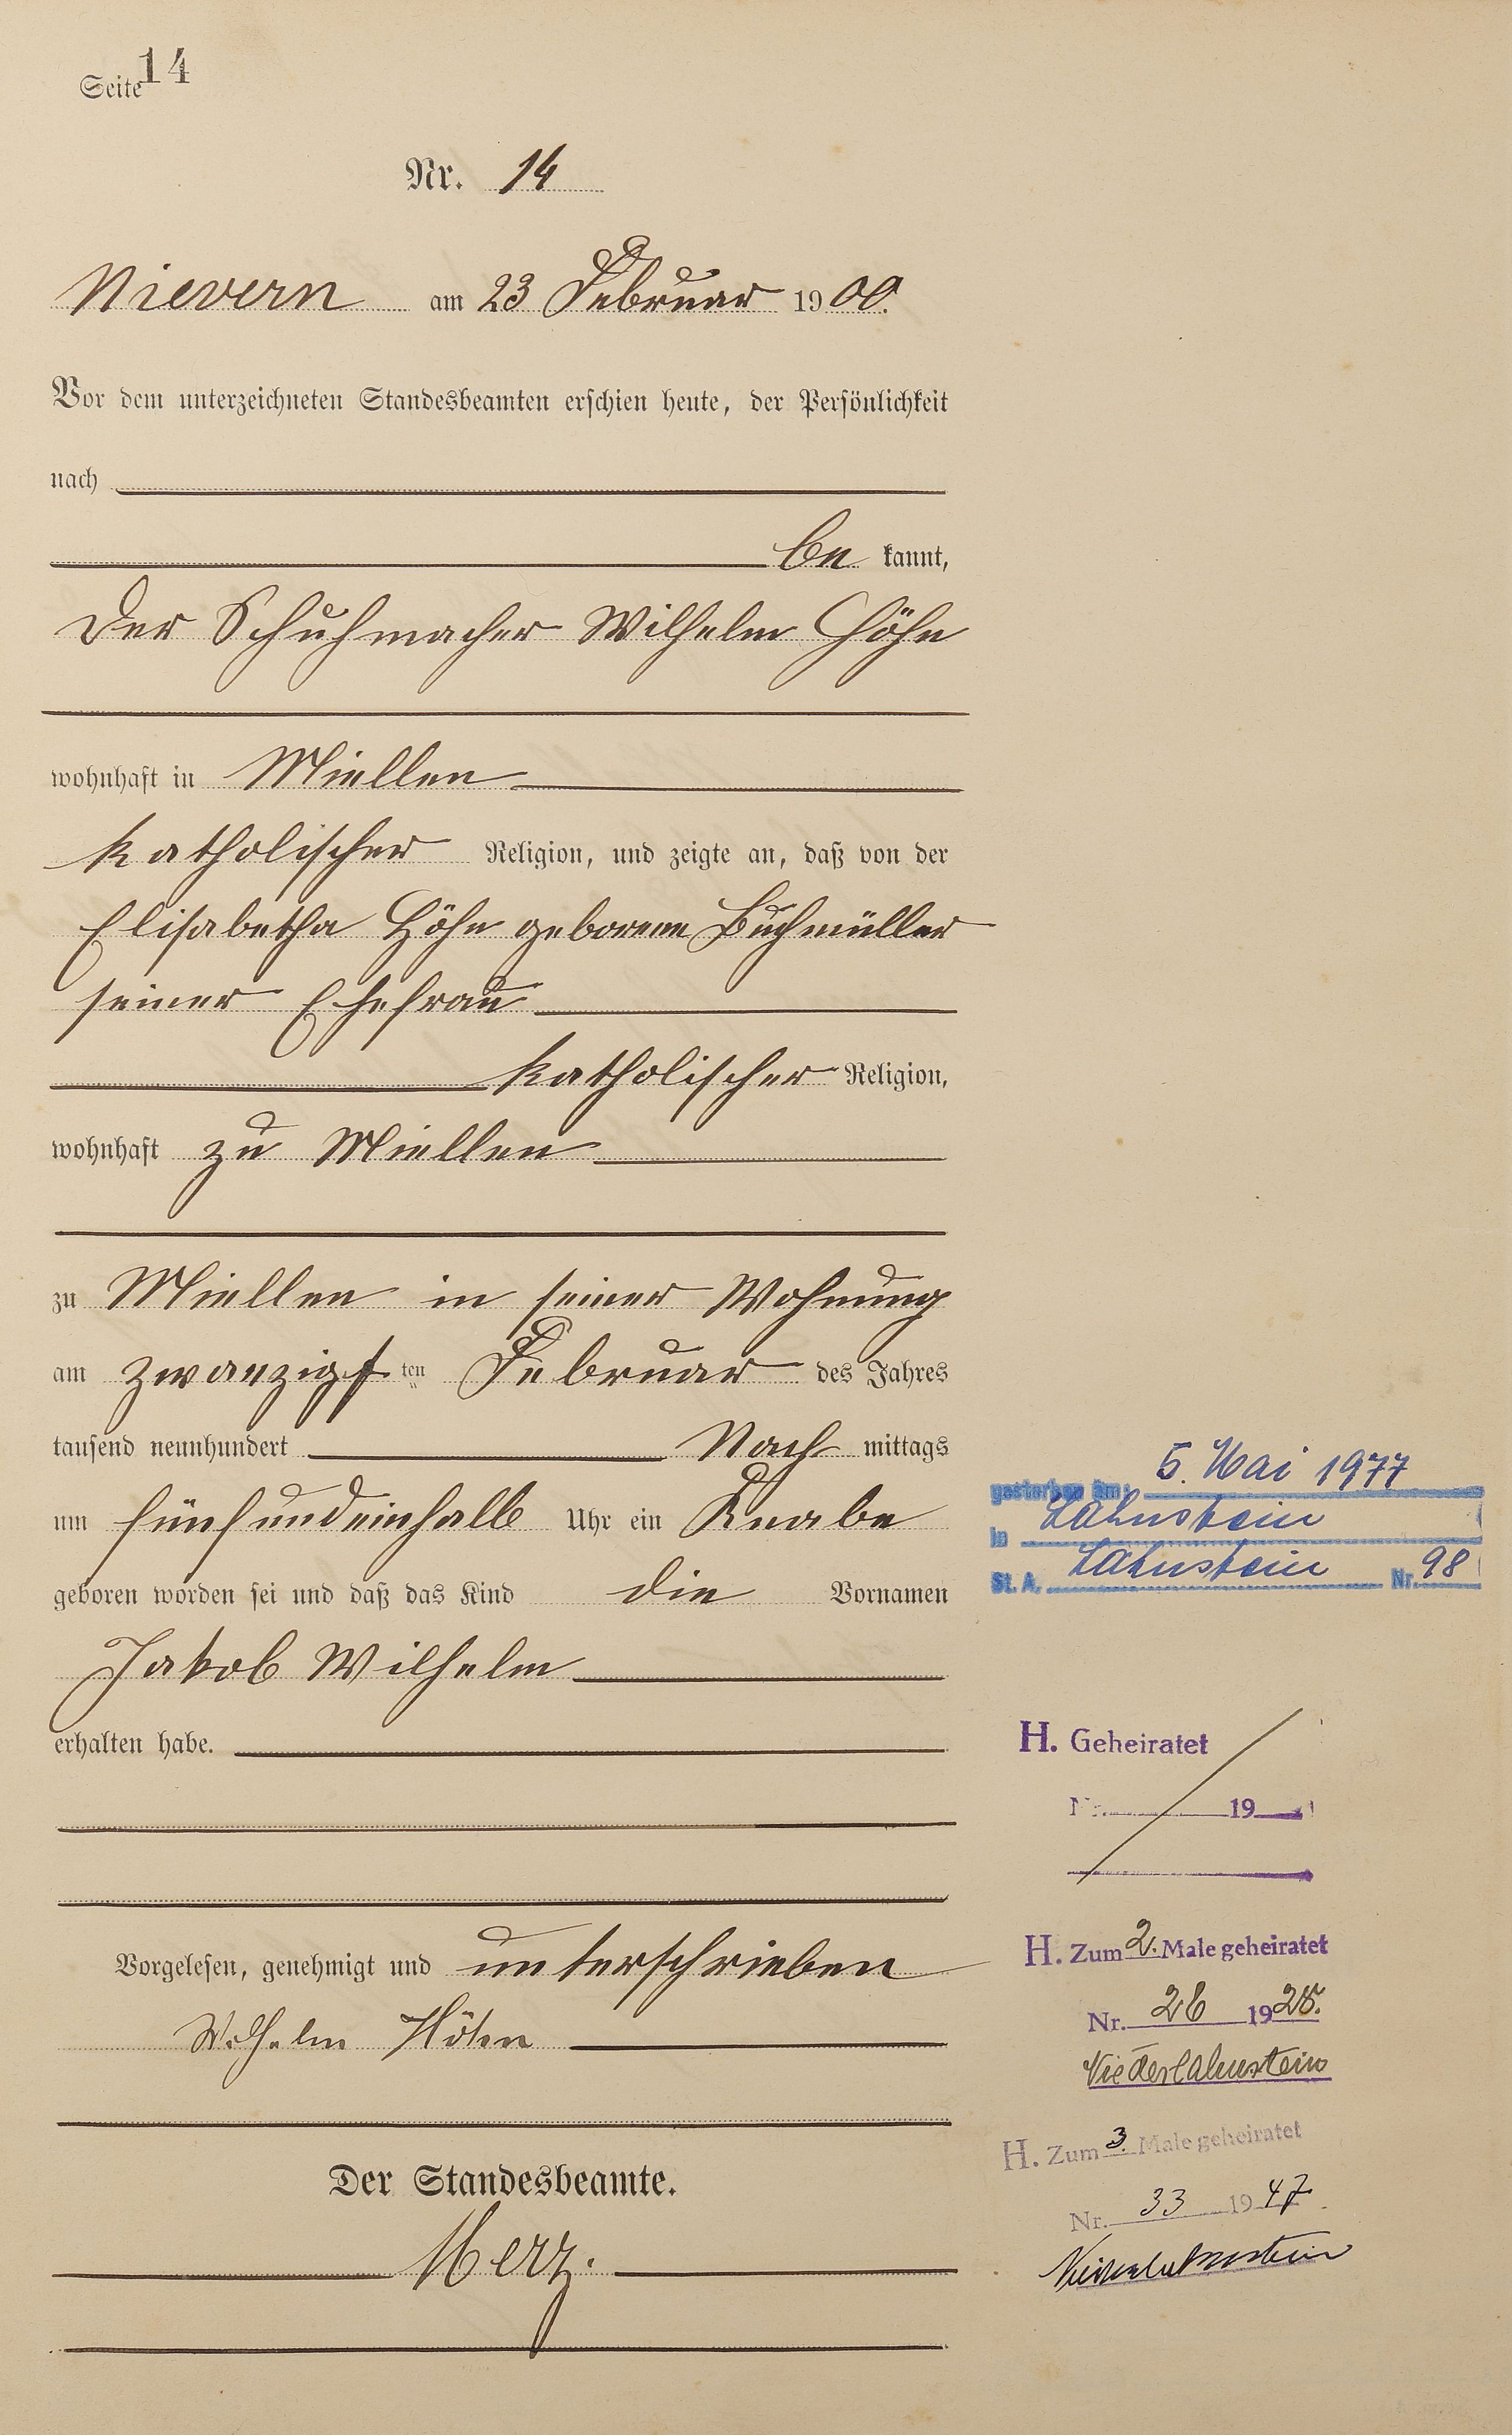 Seite 14
Nr. 14
Nievern am 23 Februar 1900.
Vor dem unterzeichneten Standesbeamten erschien heute, der Persönlichkeit
nach
be kannt,
der Schuhmacher Wilhelm Höhn
wohnhaft in Miellen
katholischer Religion, und zeigte an, daß von der
Elisabetha Höhn geborene Buchmüller
seiner Ehefrau
katholischer Religion,
wohnhaft zu Miellen
zu Miellen in seiner Wohnung
am zwanzigsten Februar des Jahres
tausend neunhundert Nach mittags
um fünfundeinhalb Uhr ein Knabe
geboren worden sei und daß das Kind die Vornamen
Jakob Wilhelm
erhalten habe.
Vorgelesen, genehmigt und unterschrieben
Wilhelm Höhn
Der Standesbeamte.
Merz.
gestorben am: 5. Mai 1977
in Lahnstein
St. A. Lahnstein Nr. 98
H. Geheiratet
Nr. 19
H. Zum 2. Male geheiratet
Nr. 26 1928.
Niederlahnstein
H. Zum 3. Male geheiratet
Nr. 33 1947
Niederlahnstein